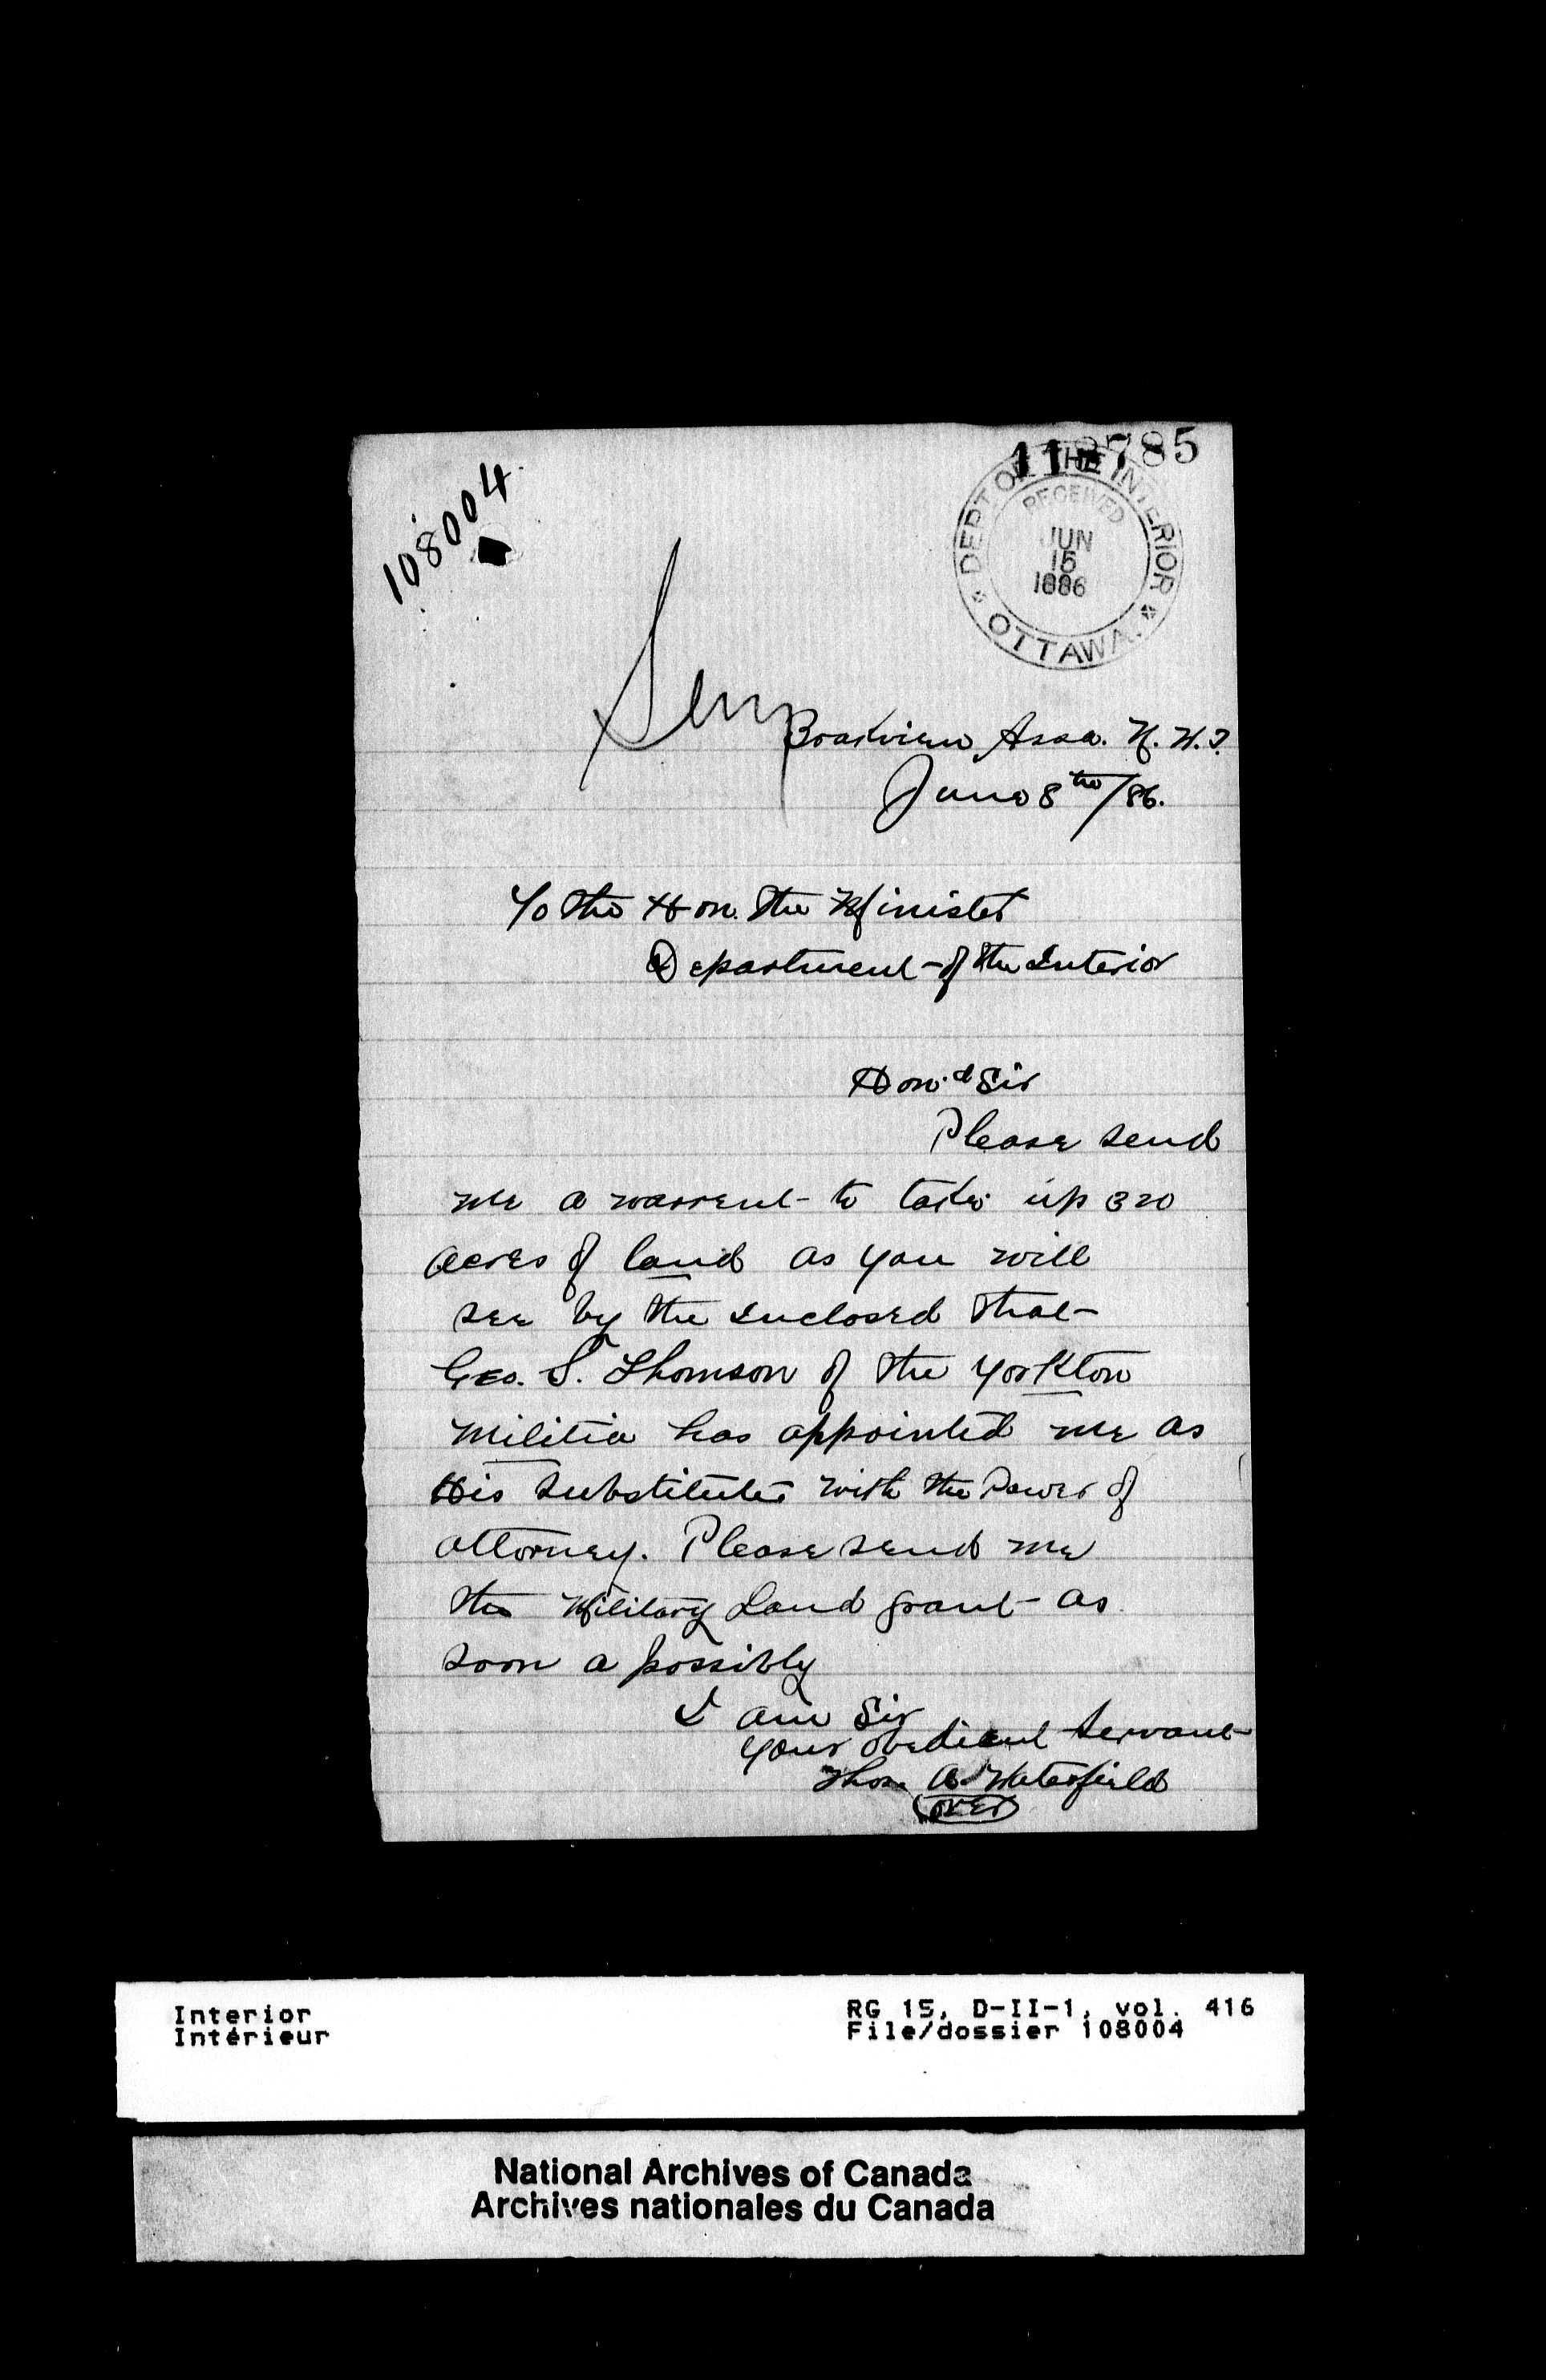 108004
785
DEPT OF THE INTERIOR
RECEIVED
JUN
15
1886
OTTAWA.
Broadview Assa. N.W.T.
June 8th/86.
To the Hon. the Minister
Department of the Interior
Hon'd Sir
Please send
me a warrent to take up 320
acres of land as you will
see by the enclosed that
Geo. S. Thomson of the Yorkton
Militia has appointed me as
His substitute with the Power of
attorney. Please send me
the Military Land grant as
soon a possibly
I am Sir
your obedient Servant
Thos. A. Waterfield
(over)
Interior
Intérieur
RG 15, D-II-1, vol. 416
File/dossier 108004
National Archives of Canada
Archives nationales du Canada